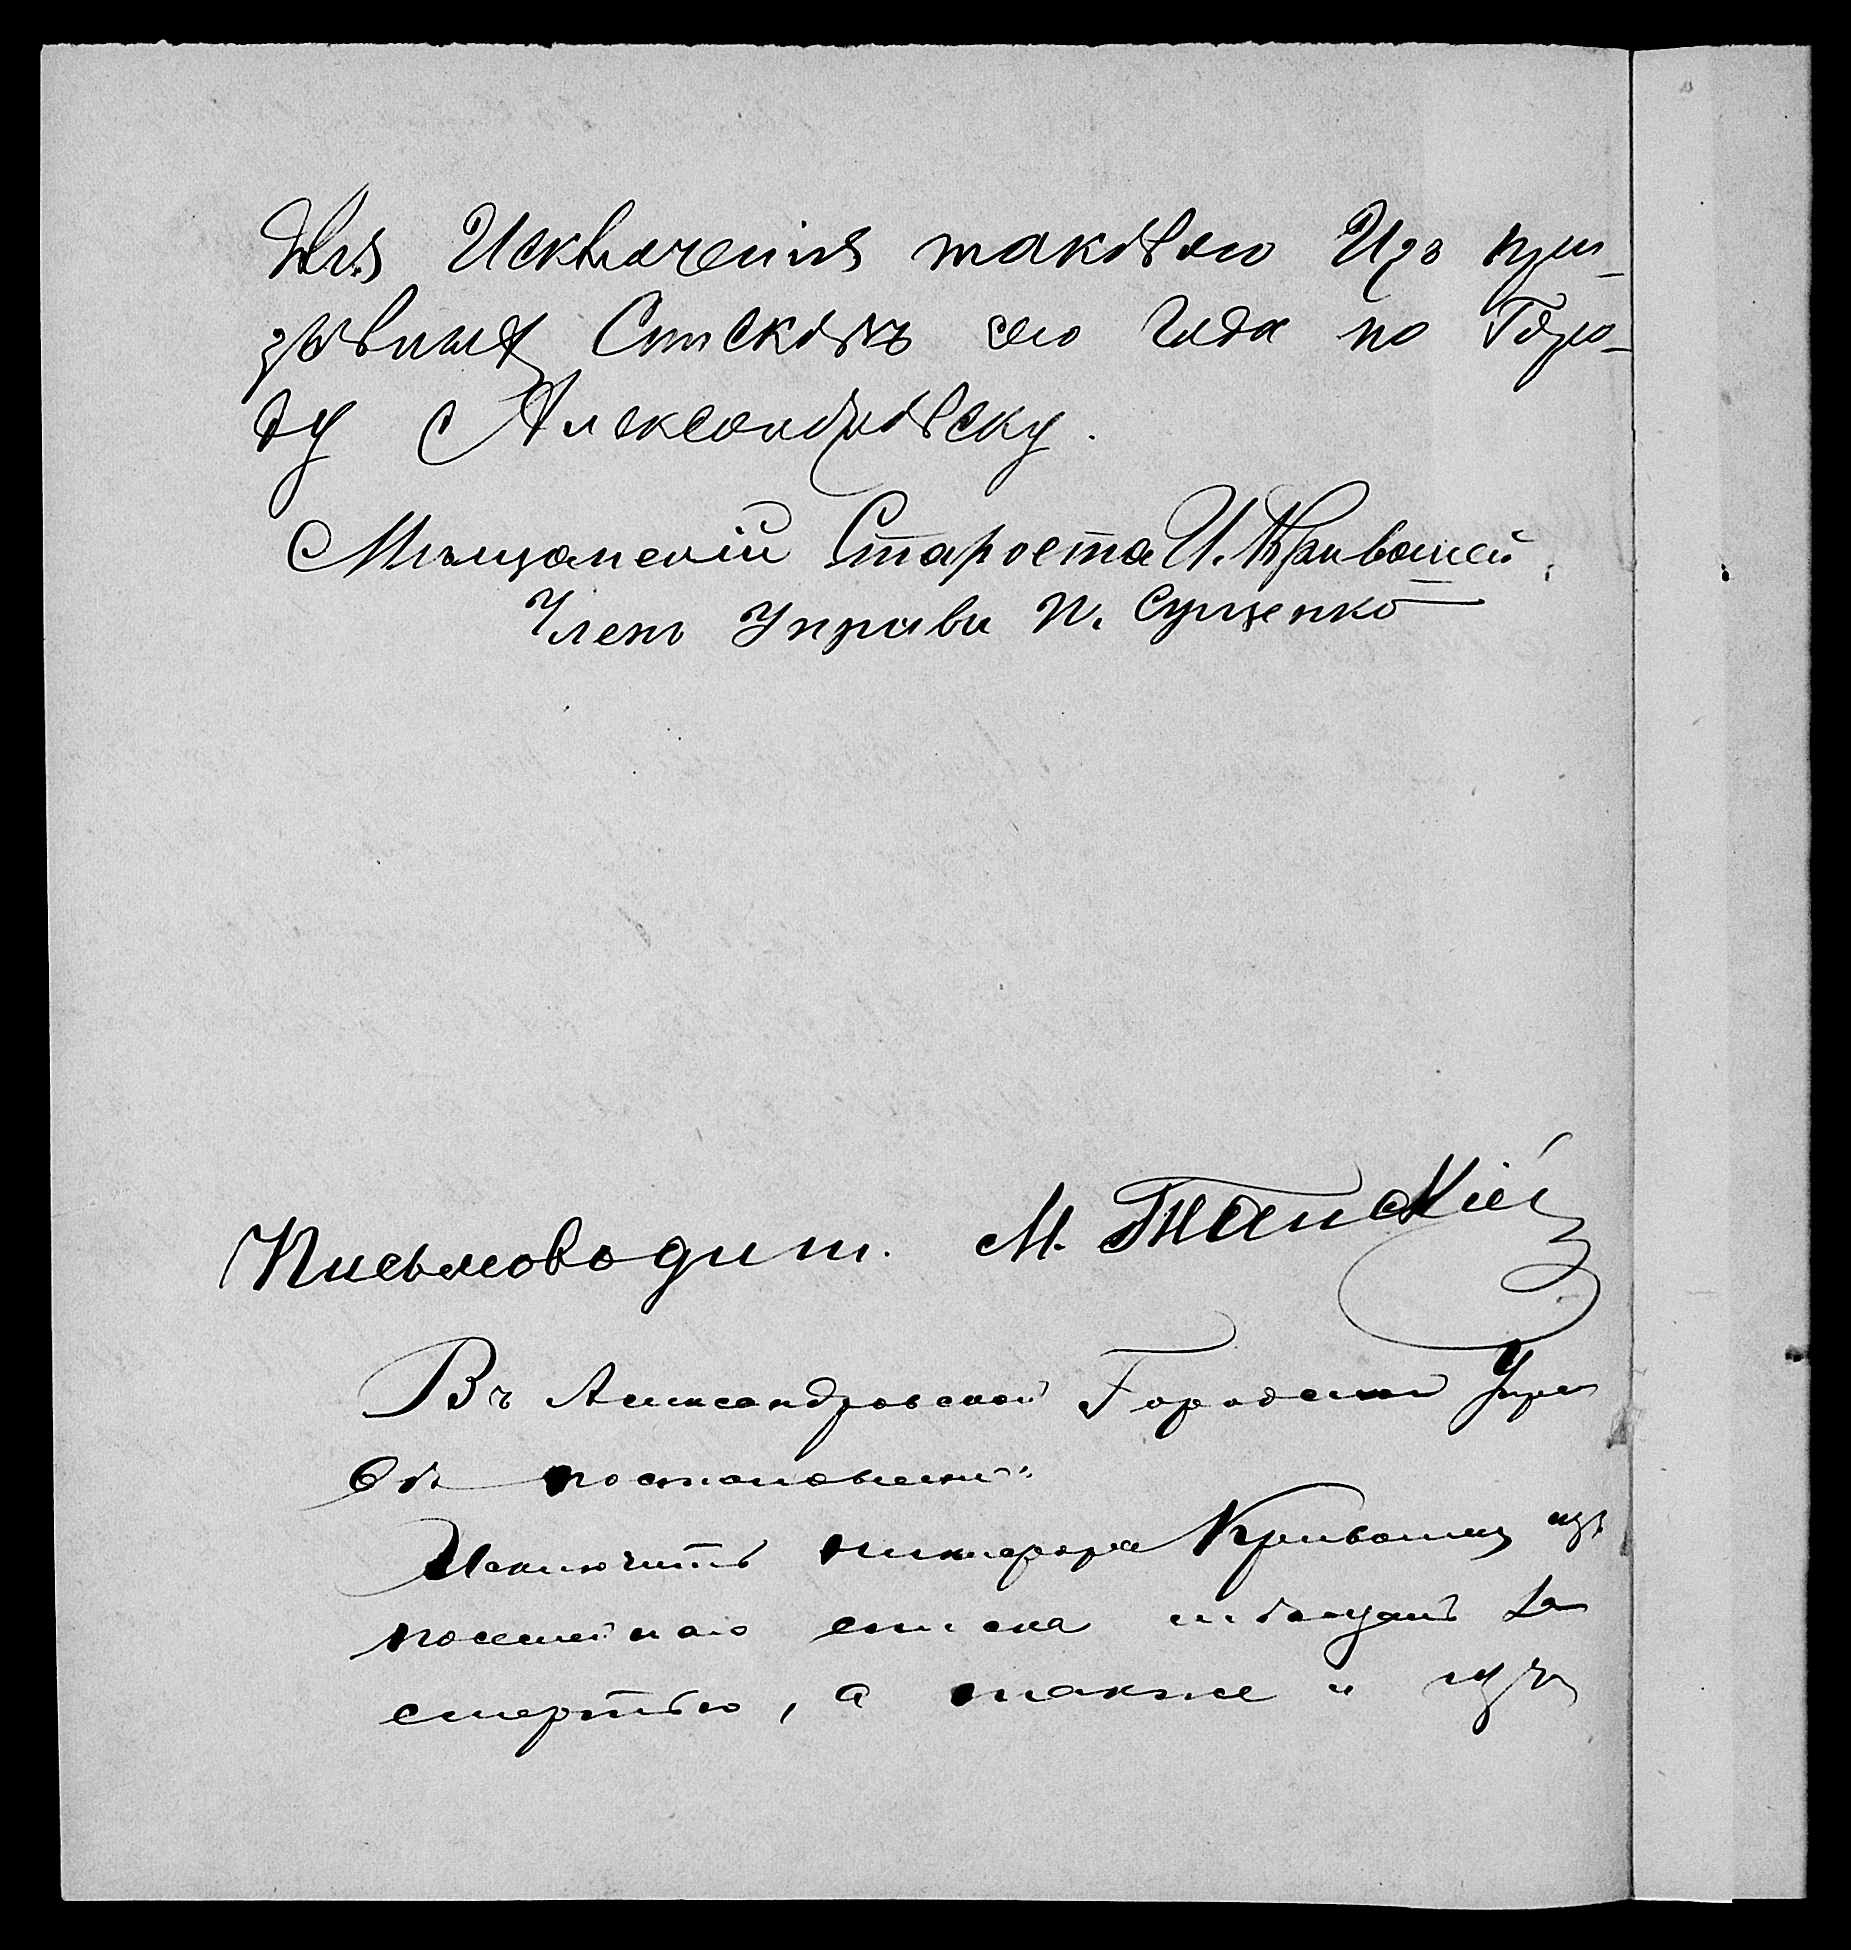 для Исключенія таковаго Изъ при-
зывныхъ Списковъ сего Года по Горо-
ду Александровску.
Мѣщанскій Староста И. Кривошей
Членъ Управы П. Сущенко
Письмоводит. М. Танскій
Въ Александровской Городской Упра
вѣ постановлено:
Исключить Никифора Кривошея изъ
посемейнаго списка мѣщанъ за
смертью, а также и изъ